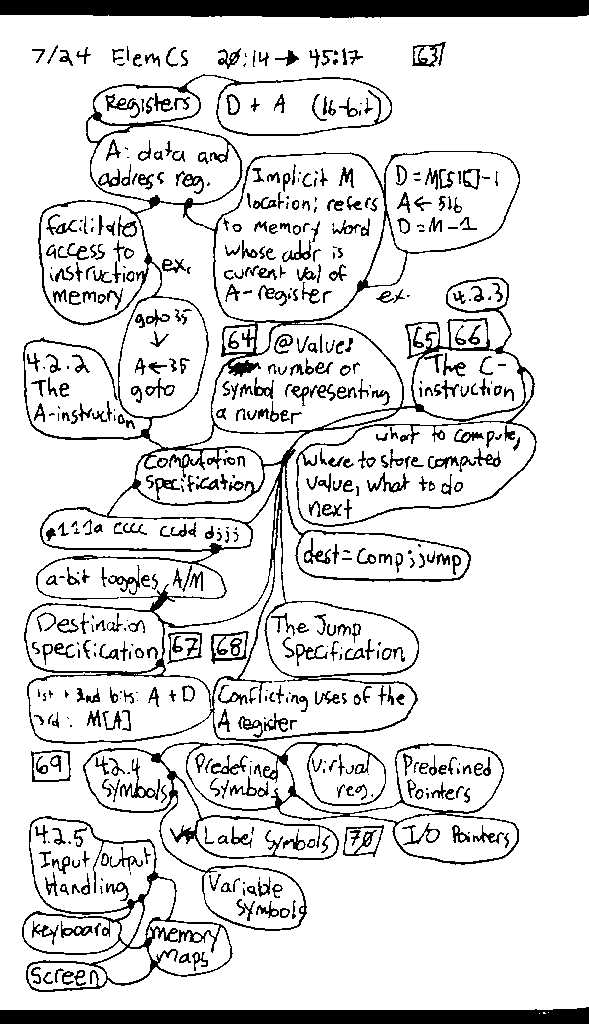 7/24 ElemCS 20:14 → 45:17 63
Registers
D + A (16-bit)
A: data and
address reg.
Implicit M
location; refers
to memory word
whose addr is
current val of
A-register
D=M[516]-1
A ← 516
D=M-1
ex.
facilitates
access to
instruction
memory
ex.
goto 35
↓
A←35
goto
4.2.2
The
A-instruction
64
@value:
number or
symbol representing
a number
4.2.3
65 66
The C-
instruction
what to compute,
where to store computed
value, what to do
next
Computation
Specification
111a cccc ccdd djjj
dest=comp;jump
a-bit toggles A/M
Destination
Specification
67 68
The Jump
Specification
1st + 2nd bits: A + D
3rd: M[A]
Conflicting uses of the
A register
69
4.2.4
Symbols
Predefined
Symbols
Virtual
reg.
Predefined
Pointers
Label Symbols
70
I/O Pointers
4.2.5
Input/Output
Handling
Variable
Symbols
Keyboard
memory
maps
Screen